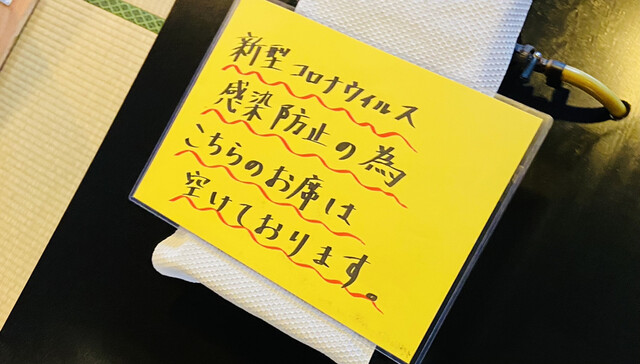 新型コロナウィルス
感染防止の為
こちらのお席は
空けております。